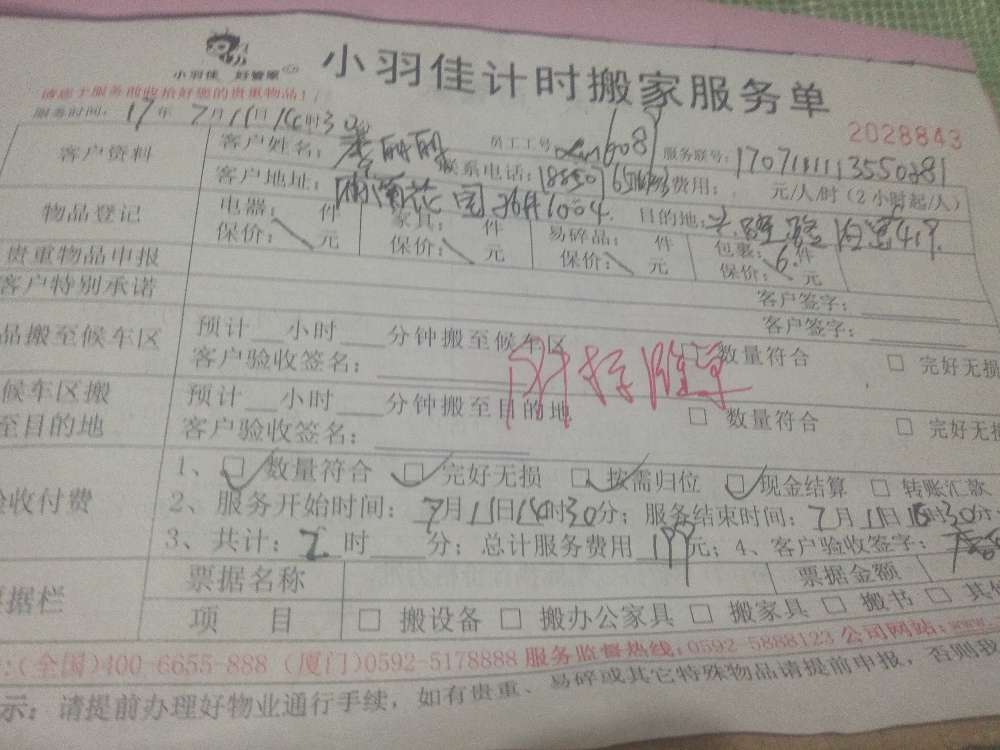 小羽佳 好管家
小羽佳计时搬家服务单
请您于服务前收拾好您的贵重物品!
2028843
服务时间: 17年 7月11日14时30分
客户资料
客户姓名: 员工工号 608 服务联号: 费用: 元/人/时 (2小时起/人)
联系电话:
客户地址: 园 1004 目的地:
物品登记
电器: 件 家具: 件 易碎品: 件 包裹: 6 件
保价: 元 保价: 元 保价: 元 保价: 元
贵重物品申报
客户签字:
客户特别承诺
客户签字:
品搬至候车区
预计 小时 分钟搬至候车区 □ 数量符合 □ 完好无损
客户验收签名:
候车区搬至目的地
预计 小时 分钟搬至目的地 □ 数量符合 □ 完好无损
客户验收签名:
验收付费
1、☑ 数量符合 ☑ 完好无损 ☑ 按需归位 ☑ 现金结算 □ 转账汇款
2、服务开始时间: 7月11日14时30分; 服务结束时间: 7月11日16时30分;
3、共计: 2 时 分; 总计服务费用 199 元; 4、客户验收签字:
票据栏
票据名称 票据金额
项 目 □ 搬设备 □ 搬办公家具 □ 搬家具 □ 搬书 □ 其
:(全国)400-6655-888 (厦门)0592-5178888 服务监督热线:0592-5888123 公司网站:www.
示: 请提前办理好物业通行手续, 如有贵重、易碎或其它特殊物品请提前申报, 否则我